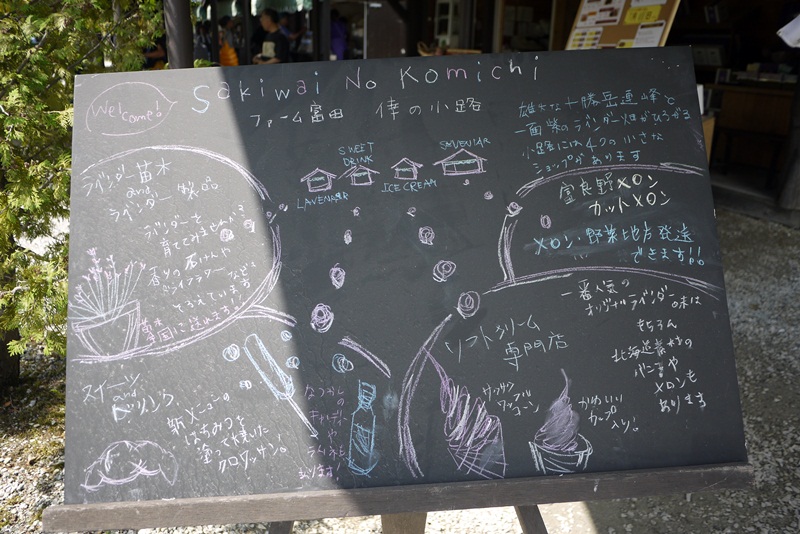 Welcome!
Sakiwai No Komichi
ファーム富田 倖の小路
雄大な十勝岳連峰と
一面紫のラベンダー畑がひろがる
小路には4つの小さな
ショップがあります
SWEET
DRINK
SOUVENIAR
LAVENDAR
ICE CREAM
ラベンダー苗木
and
ラベンダー製品
ラベンダーを
育ててみませんか?
香りの石けんや
ドライフラワーなど
そろえています
全国に送れます!
富良野メロン
カットメロン
メロン・野菜地方発送
できます!!
一番人気の
オリジナルラベンダー味は
もちろん
北海道素材の
バニラや
メロンも
あります
ソフトクリーム
専門店
サクサク
ワッフル
コーン
かわいい
カップ
入り!
スイーツ
and
ドリンク
新メニューの
はちみつを
塗って焼いた
クロワッサン!
なつかしの
キャンディー
や
ラムネも
あります!